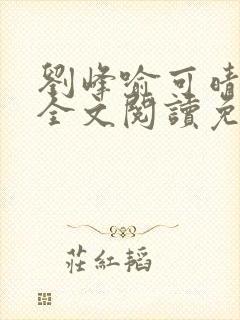 劉峰喻可晴
全文閱讀免
莊紅韜